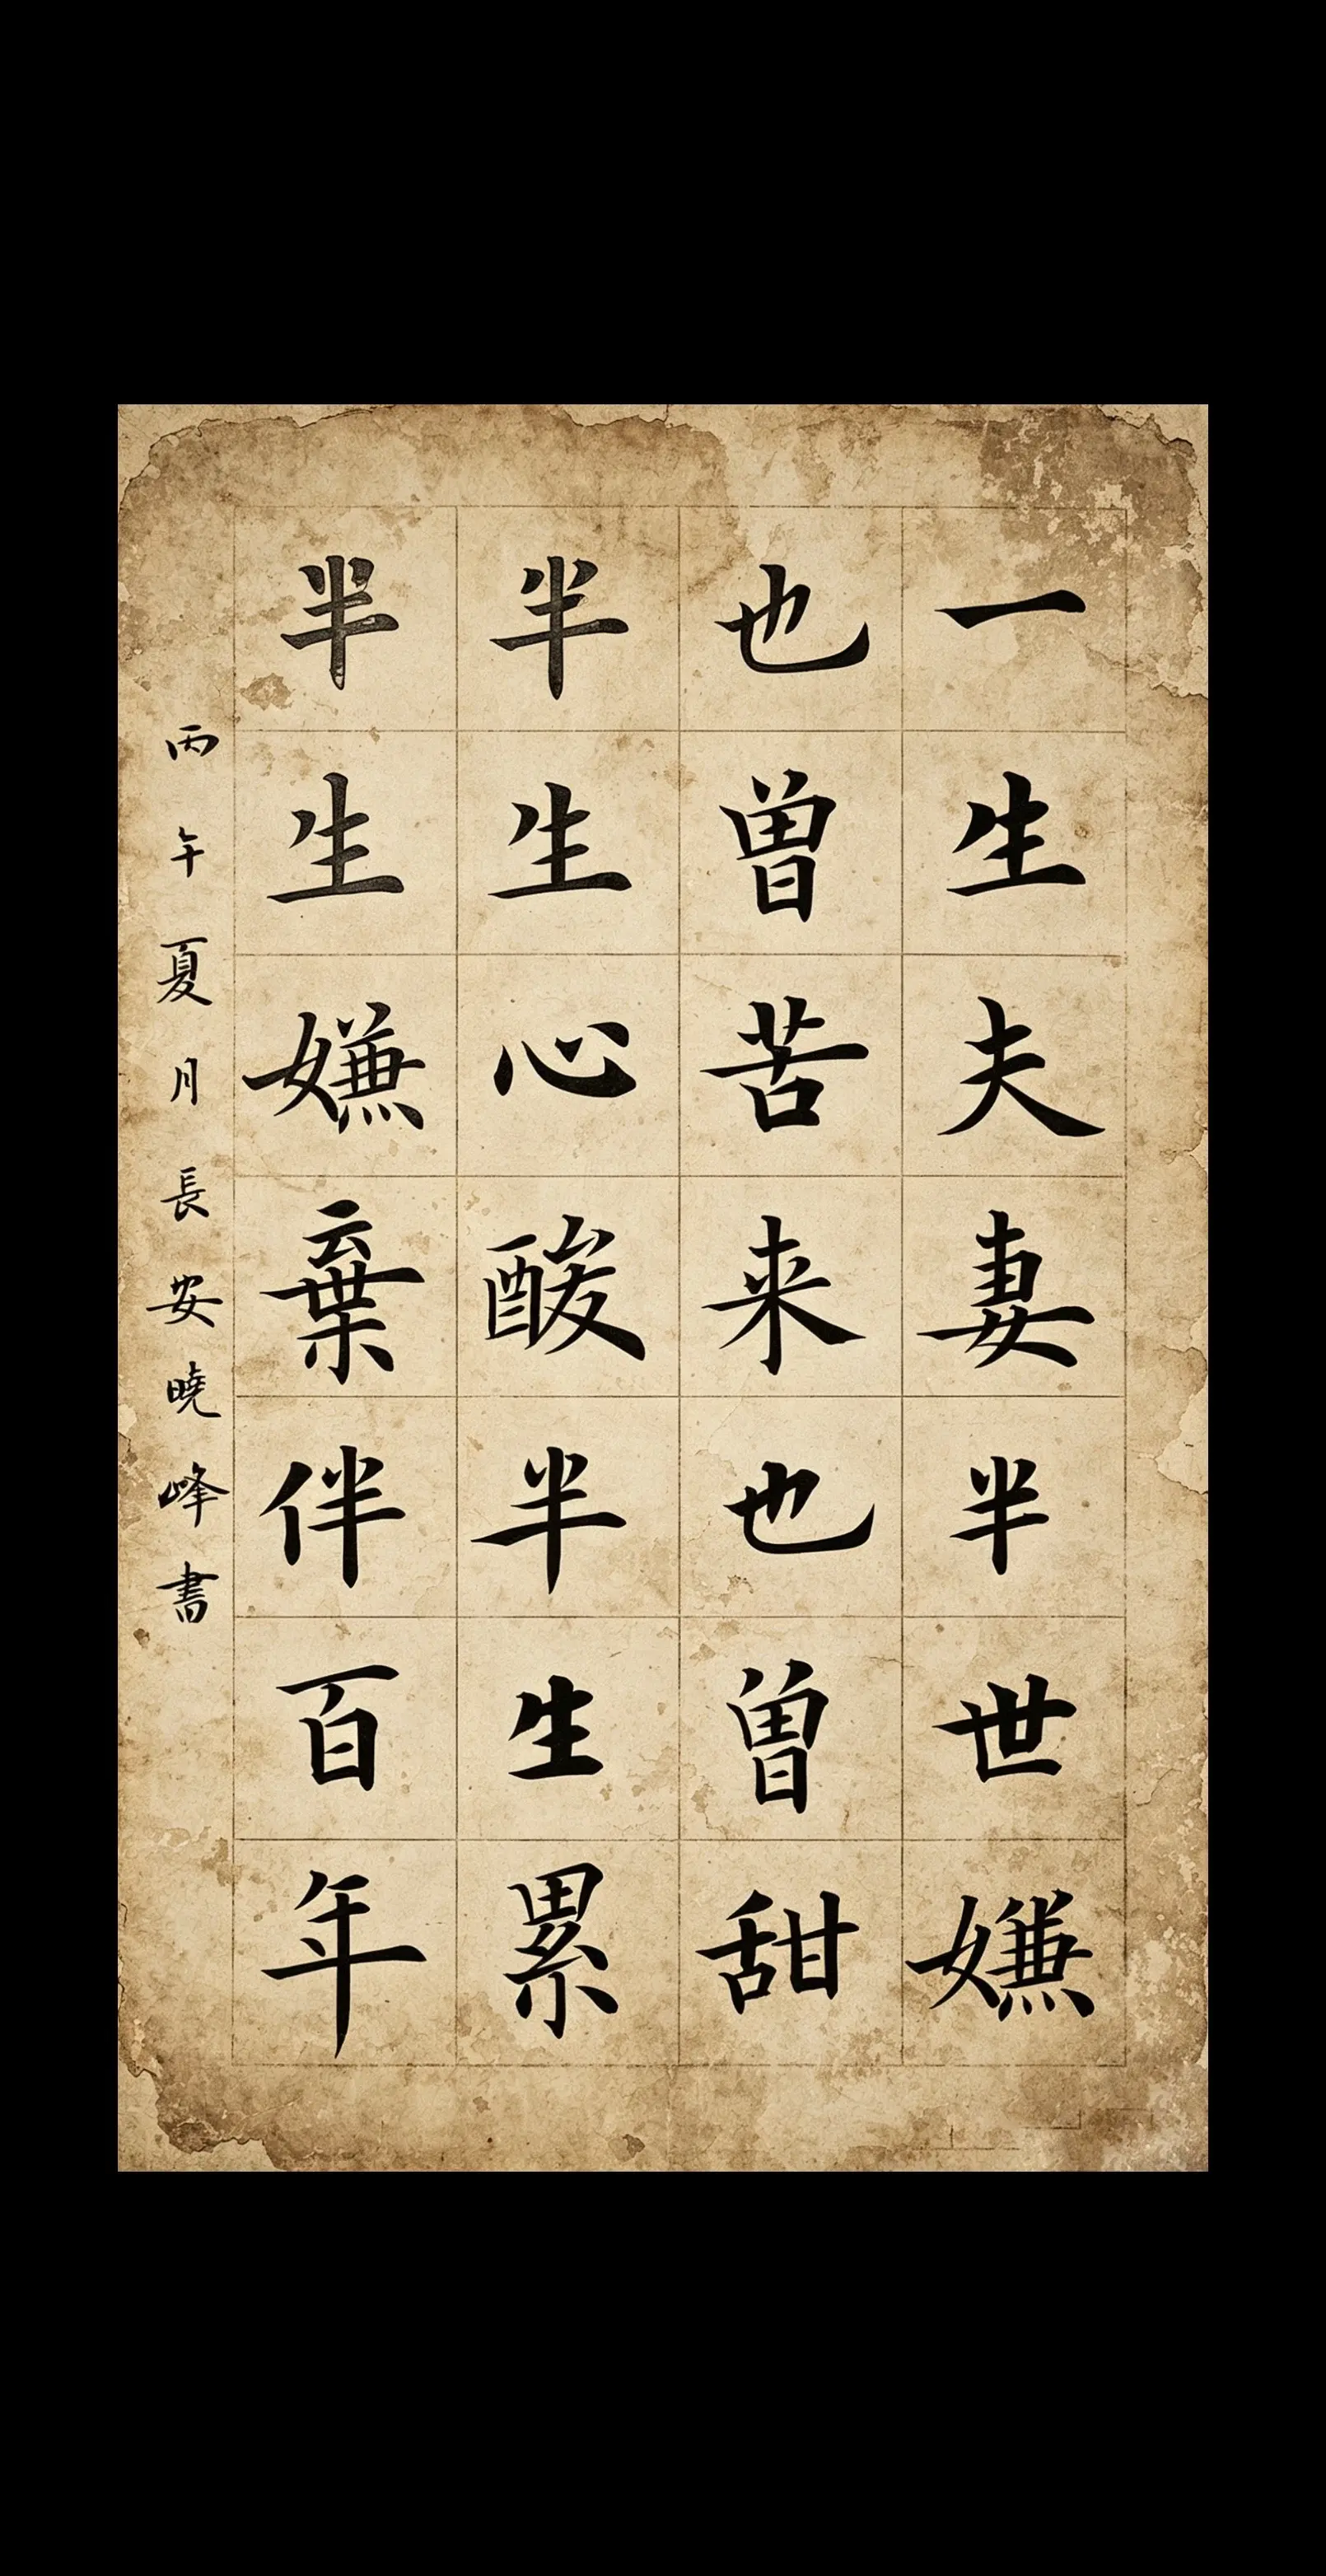 一生夫妻半世嫌
也曾苦来也曾甜
半生心酸半生累
半生嫌棄伴百年
丙午夏月長安曉峰書